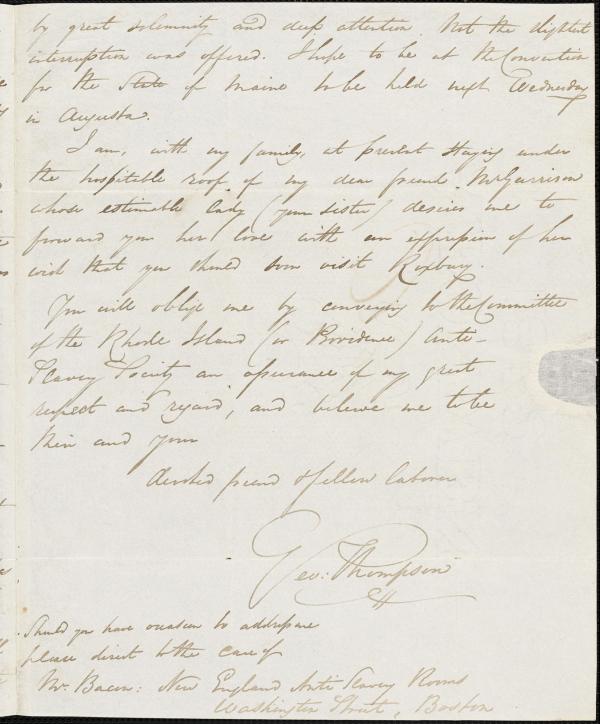 by great solemnity and deep attention. Not the slightest
interruption was offered. I hope to be at the Convention
for the State of Maine to be held next Wednesday
in Augusta.
I am, with my family, at present staying under
the hospitable roof of my dear friend Mr Garrison
whose estimable lady (your sister) desires me to
forward you her love with an expression of her
wish that you should soon visit Roxbury.
You will oblige me by conveying to the Committee
of the Rhode Island (or Providence) Anti-
Slavery Society an assurance of my great
respect and regard, and believe me to be
their and your
devoted friend & fellow laborer
Geo: Thompson
Should you have occasion to address me
please direct to the care of
Mr. Bacon: New England Anti Slavery Rooms
Washington Street, Boston